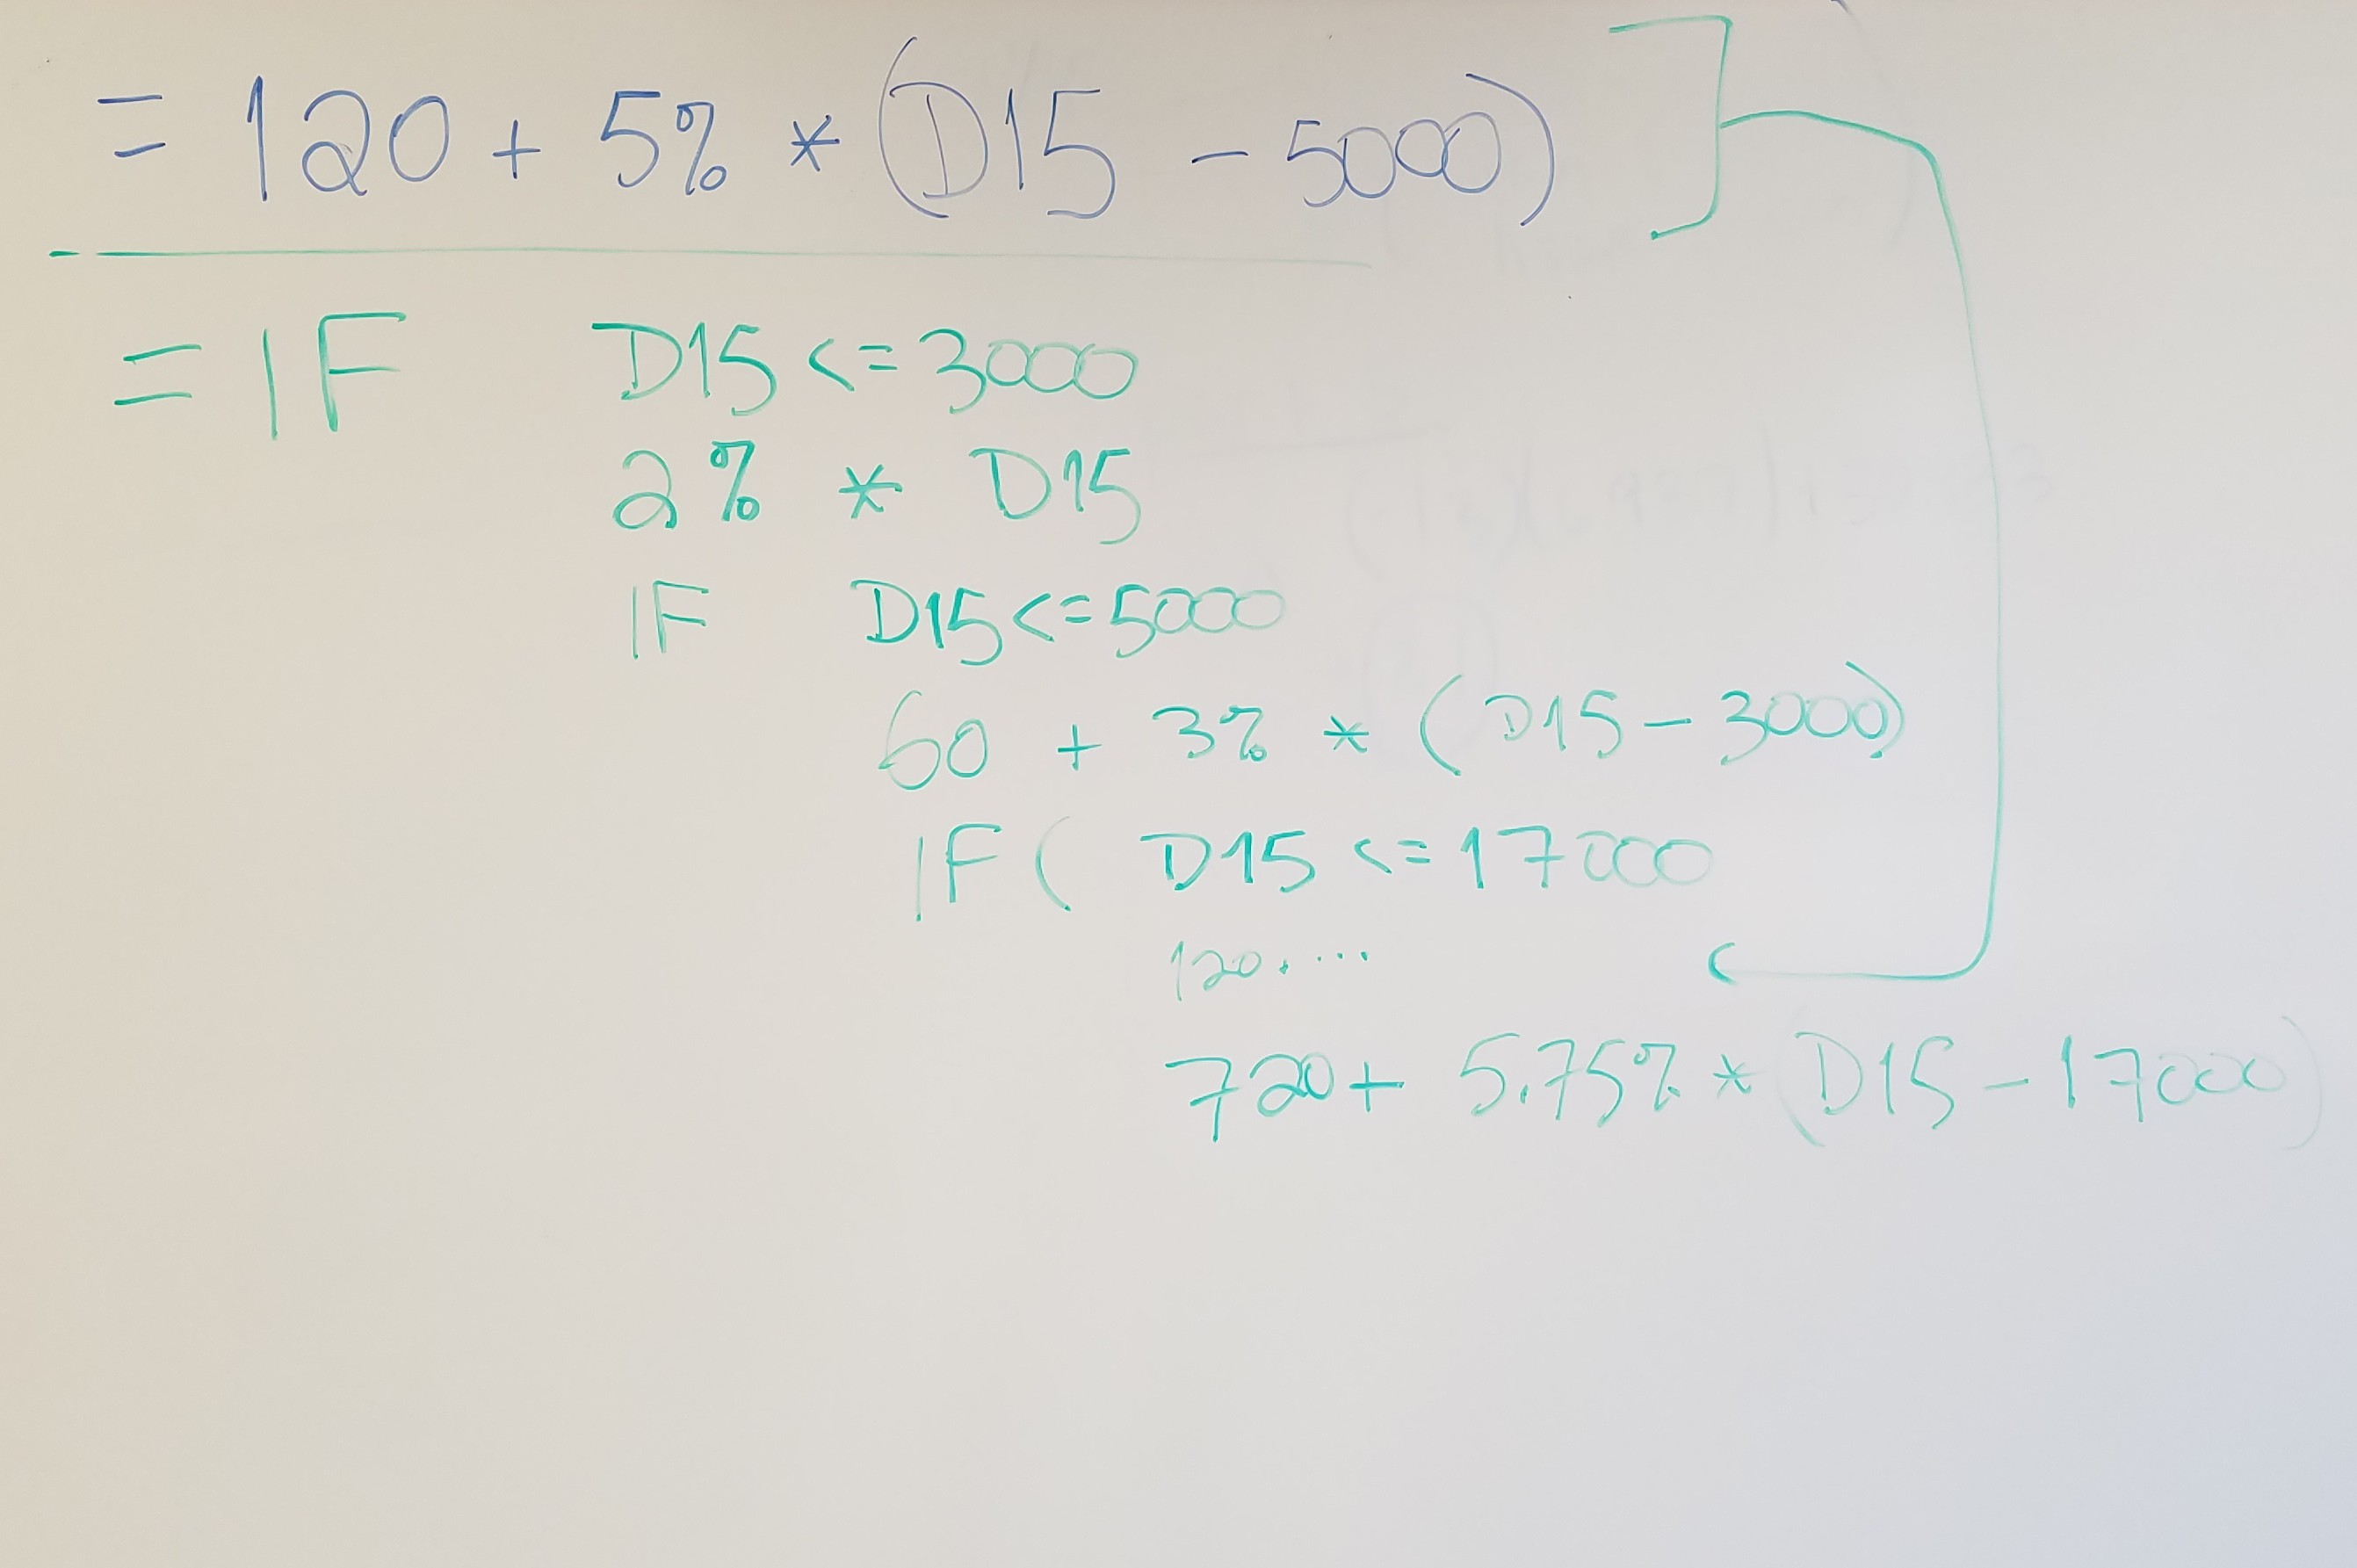 = 120 + 5% * (D15 - 5000)
= IF D15 <= 3000
2% * D15
IF D15 <= 5000
60 + 3% * (D15 - 3000)
IF ( D15 <= 17000
120.....
720 + 5.75% * (D15 - 17000)